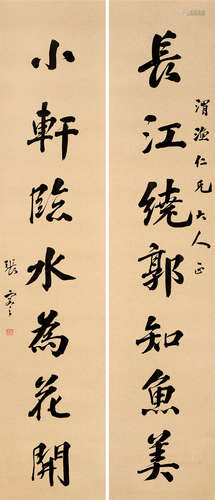 長江繞郭知魚美
渭漁仁兄大人正
小軒臨水為花開
張謇